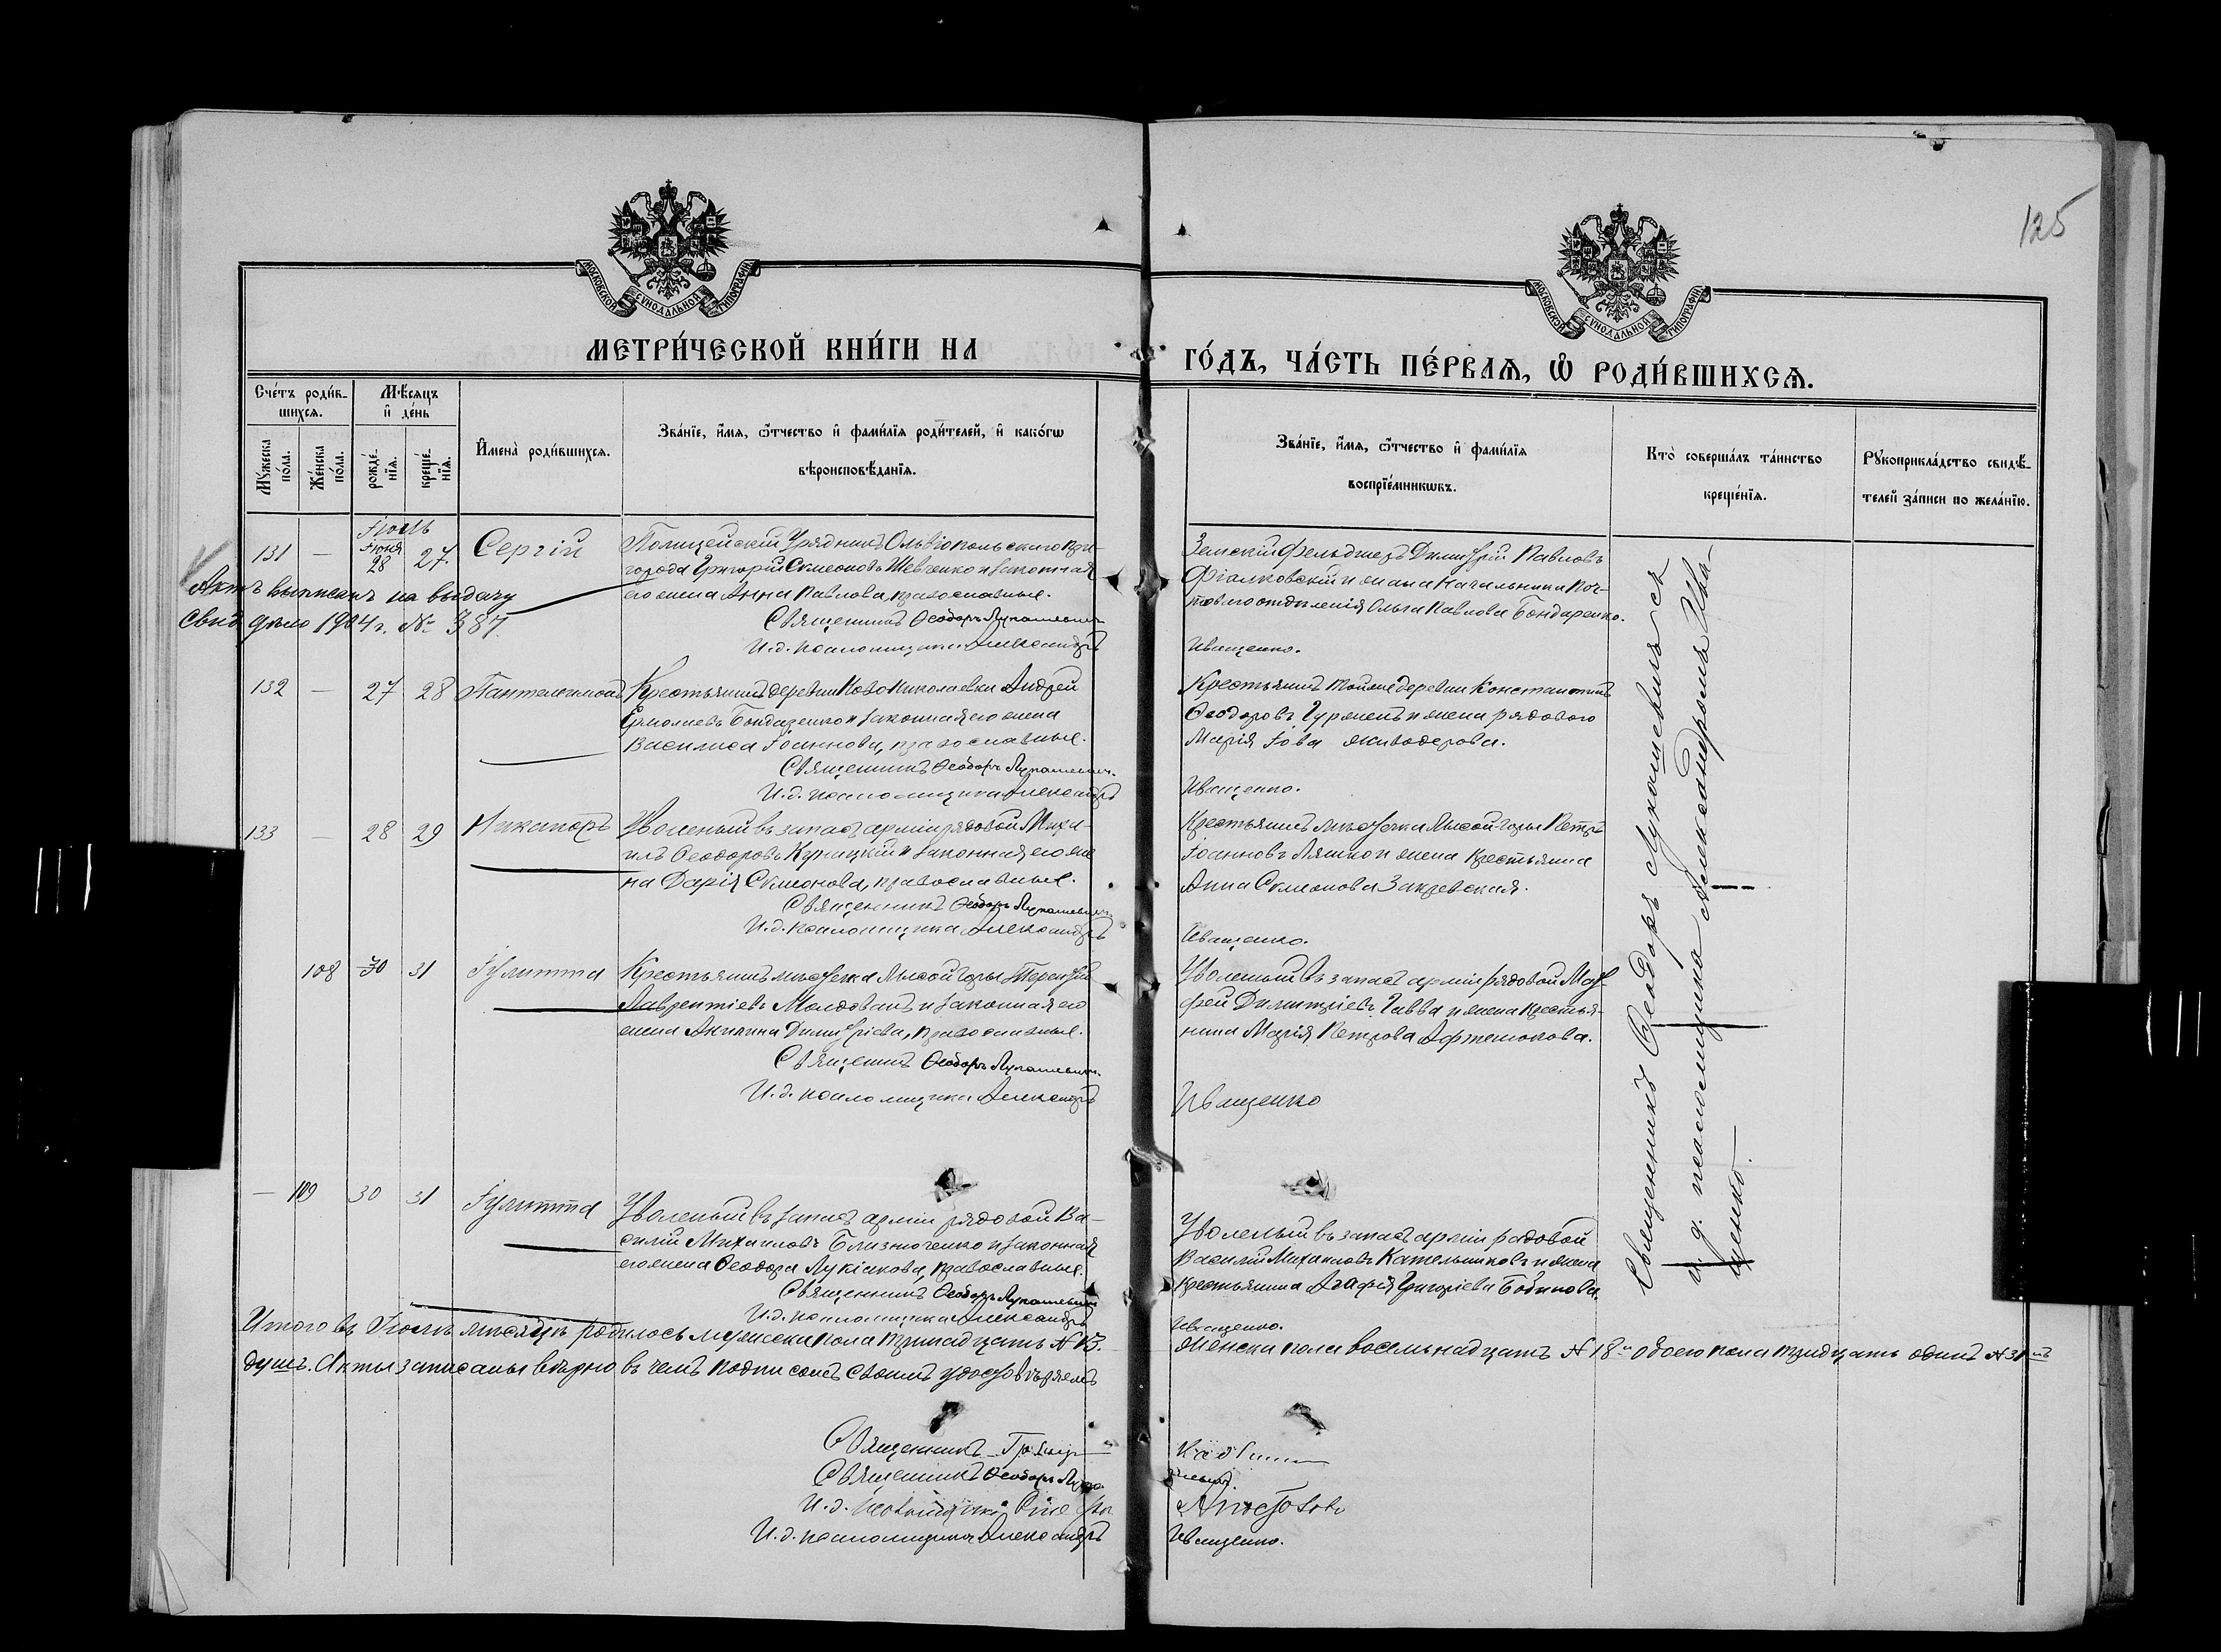 125
МОСКОВСКОЙ СѴНОДАЛЬНОЙ ТИПОГРАФІИ
МОСКОВСКОЙ СѴНОДАЛЬНОЙ ТИПОГРАФІИ
МЕТРИ́ЧЕСКОЙ КНИ́ГИ НА ГО́ДЪ, ЧА́СТЬ ПЕ́РВАѦ, Ѽ РОДИ́ВШИХСѦ.
Сче́тъ роди́в-
шихсѧ.
Мѣ́сѧцъ
и҆ де́нь
Мꙋ́жеска по́ла.
Же́нска по́ла.
рожде́-
нїѧ.
креще́-
нїѧ.
И҆мена̀ роди́вшихсѧ.
Зва́нїе, и҆́мѧ, ѻ҆́тчество и҆ фами́лїѧ роди́телей, и҆ како́гѡ
вѣроисповѣ́данїѧ.
Зва́нїе, и҆́мѧ, ѻ҆́тчество и҆ фами́лїѧ
воспрїе́мникѡвъ.
Кто̀ соверша́лъ та́инство
креще́нїѧ.
Рꙋкоприкла́дство свидѣ́-
телей за́писи по жела́нїю.
Іюль
131 — Іюня 28 27. Сергій
Полицейскій Урядникъ Ольвіопольскаго при-
города Григорій Симеоновъ Шевченко и законная
его жена Анна Павлова, православные.
Священникъ Ѳеодоръ Лукашевичъ
И.д. псаломщика Александръ
Земскій фельдшеръ Димитрій Павловъ
Фіалковскій и жена Начальника Поч-
товаго отдѣленія Ольга Павлова Бондаренко.
Иващенко.
Актъ выписанъ на выдачу
Свид. 1904 г. № 387.
132 — 27 28 Пантелеимонъ
Крестьянинъ деревни Новониколаевки Андрей
Ермолаевъ Бондаренко и законная его жена
Василиса Іоаннова, православные.
Священникъ Ѳеодоръ Лукашевичъ.
И.д. псаломщика Александръ
Крестьянинъ той же деревни Константинъ
Ѳеодоровъ и жена рядового
Марія Іова Живодерова.
Иващенко.
133 — 28 29 Никаноръ
Уволеный въ запасъ арміи рядовой Миха-
илъ Ѳеодоровъ Куницкій и законная его же-
на Дарія Симеонова, православные.
Священникъ Ѳеодоръ Лукашевичъ.
И.д. псаломщика Александръ
Крестьянинъ мѣстечка Лысой-Горы Петръ
Іоанновъ Ляшко и жена крестьянина
Анна Симеонова Закревская.
Иващенко.
108 30 31 Іулитта
Крестьянинъ мѣстечка Лысой Горы Терентій
Лаврентіевъ Молдованъ и законная его
жена Акилина Димитріева, православные.
Священникъ Ѳеодоръ Лукашевичъ.
И.д. псаломщика Александръ
Уволеный въ запасъ арміи рядовой Мат-
фей Димитріевъ Гавва и жена крестья-
нина Марія Петрова Афтемокова.
Иващенко
— 109 30 31 Іулитта
Уволеный въ запасъ арміи рядовой Ва-
силій Михаиловъ Близнюченко и законная
его жена Ѳеодора Лукіанова, православные.
Священникъ Ѳеодоръ Лукашевичъ
И.д. псаломщика Александръ
Уволеный въ запасъ арміи рядовой
Василій Михаиловъ Кательниковъ и жена
крестьянина Агафія Григоріева Бобикова.
Иващенко.
Священникъ Ѳеодоръ Лукашевичъ съ
и. д. псаломщика Александромъ Ива-
щенко.
Итого въ Іюлѣ мѣсяцѣ родилось мужеска пола тринадцать № 13. Женска пола восемьнадцать № 18 и обоего пола тридцать одинъ № 31
душъ. Акты записаны вѣрно въ чемъ подписомъ своимъ удостовѣряемъ
Священникъ
Священникъ Ѳеодоръ Лукашевичъ.
И.д. псаломщика
И.д. псаломщика Александръ Иващенко.